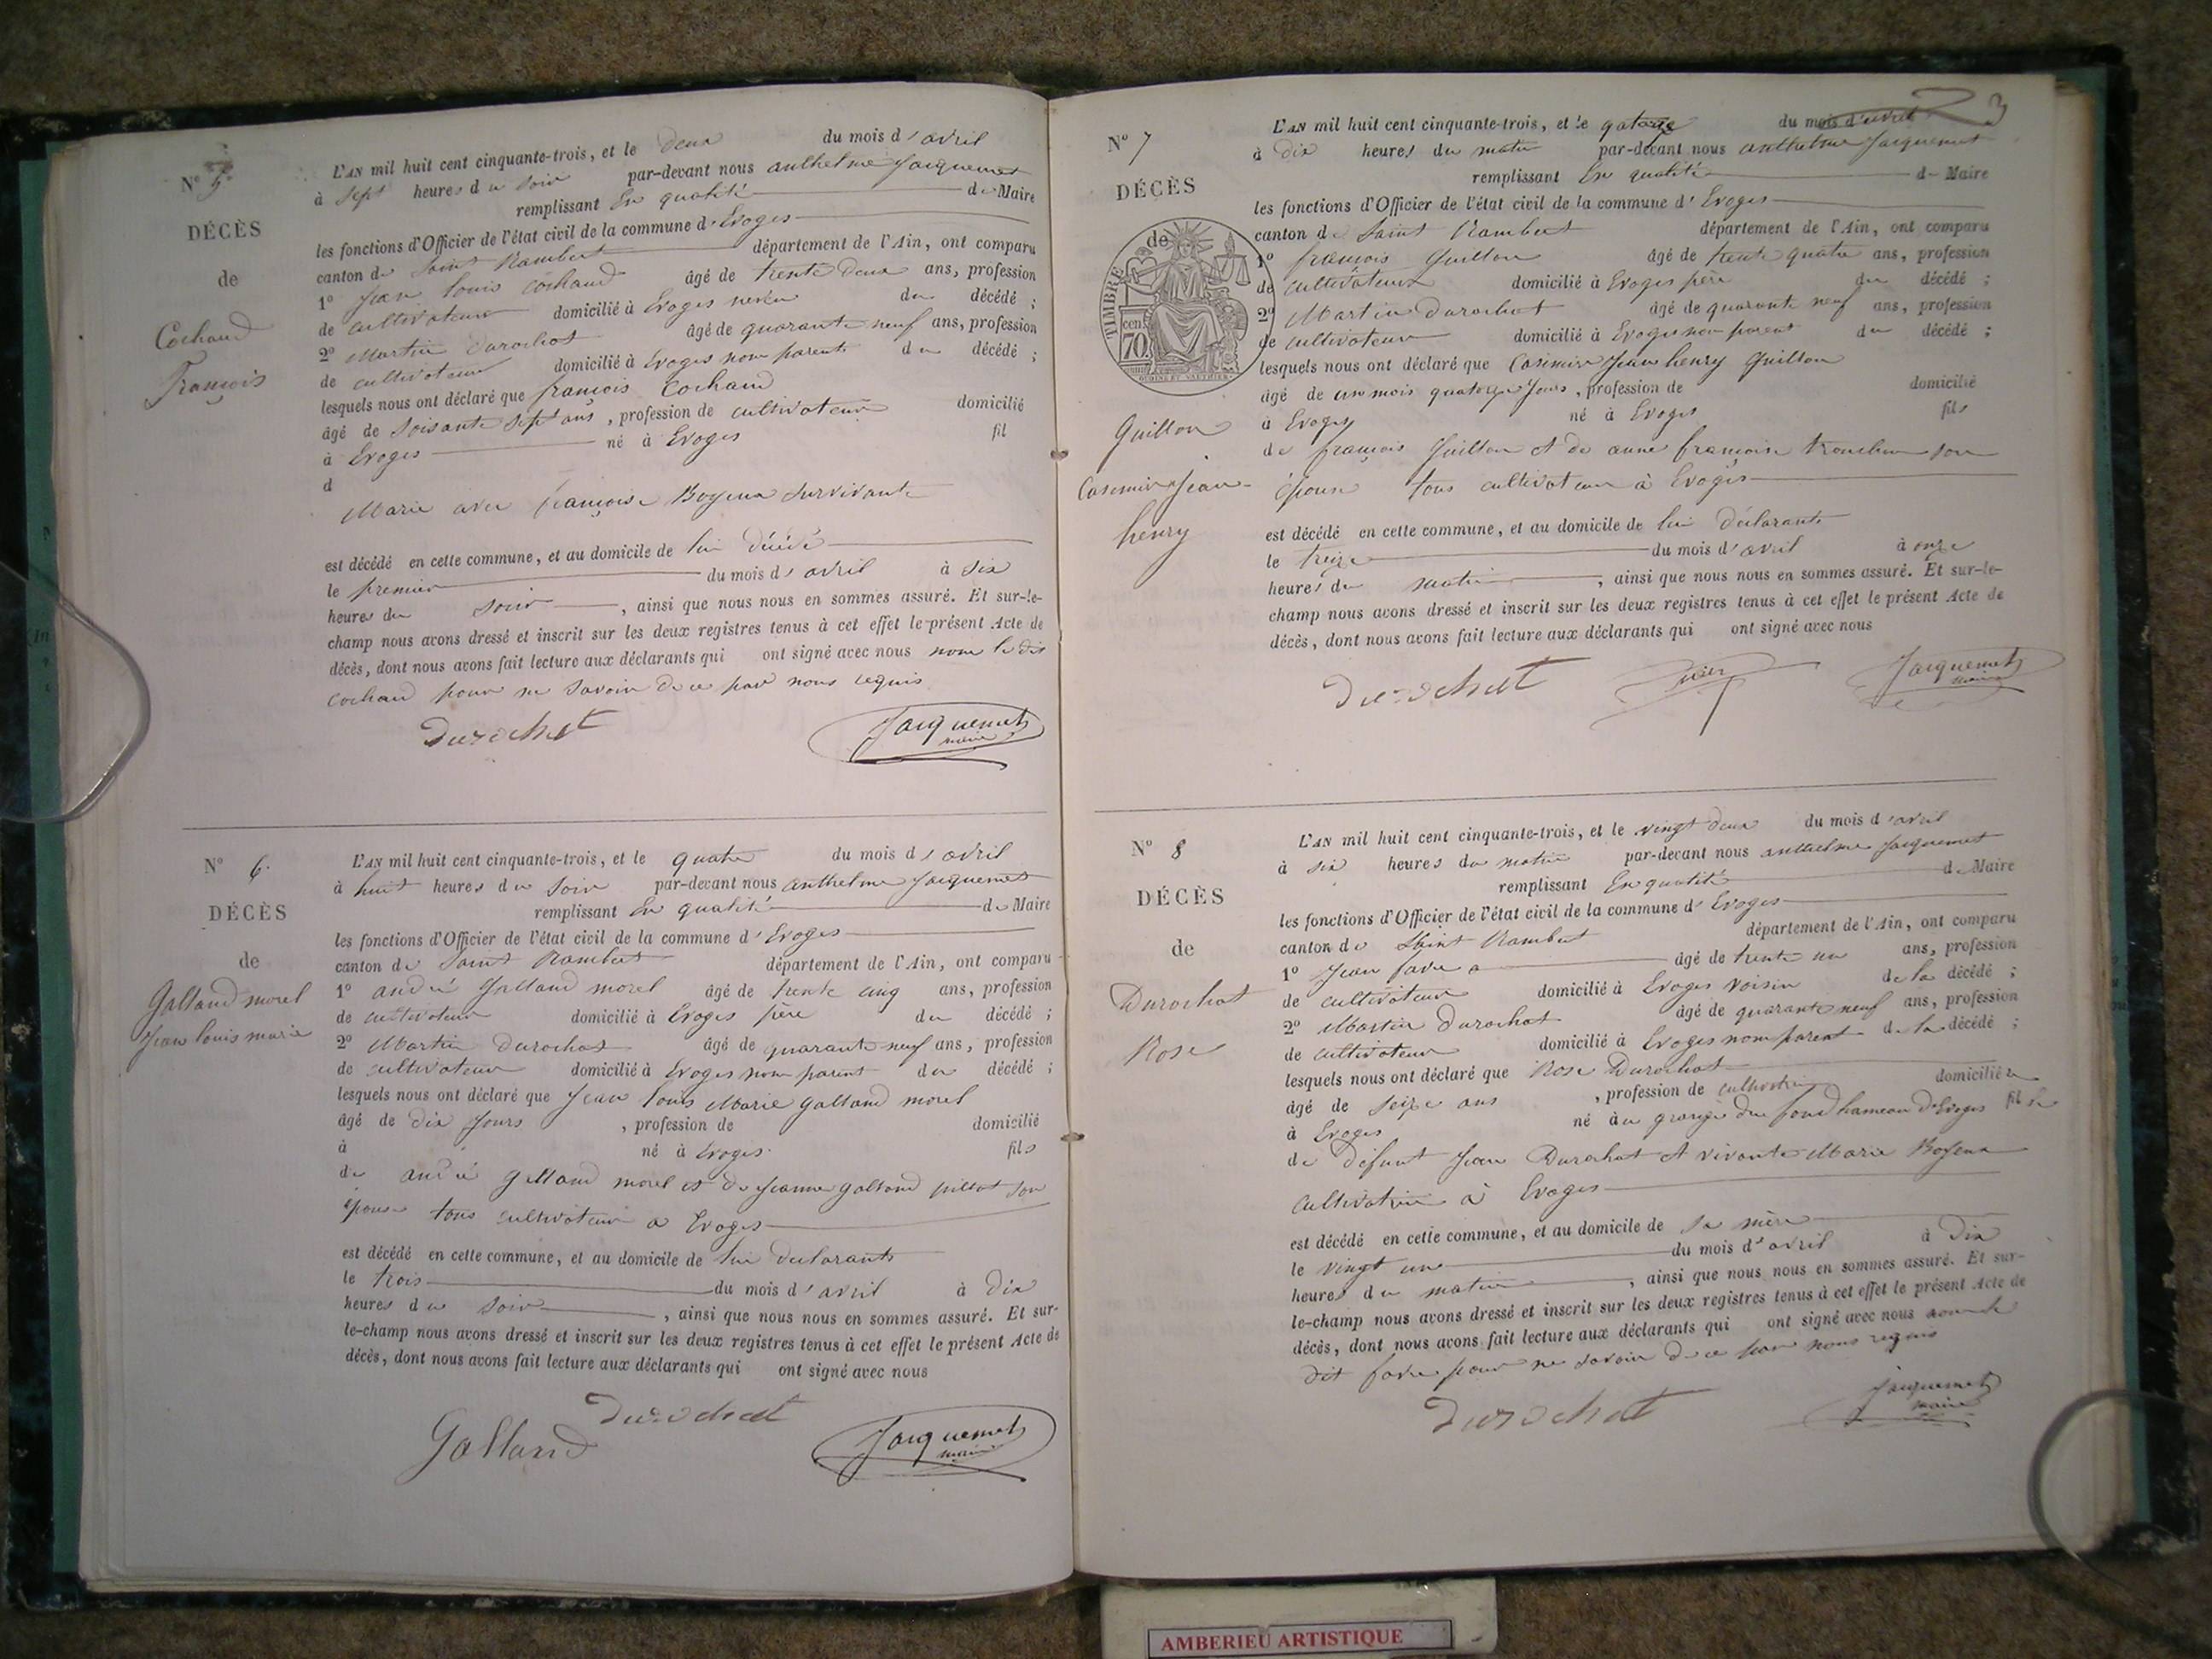 N° 5
DÉCÈS
de
Cochaud
François
L'AN mil huit cent cinquante-trois, et le deux du mois d'avril
à sept heures du soir par-devant nous anthelme Jacquemet
remplissant En qualité de Maire
les fonctions d'Officier de l'état civil de la commune d'Evoges
canton de Saint Rambert département de l'Ain, ont comparu
1° Jean louis Cochaud âgé de trente deux ans, profession
de cultivateur domicilié à Evoges neveu du décédé ;
2° Martin Durochat âgé de quarante neuf ans, profession
de cultivateur domicilié à Evoges non parent du décédé ;
lesquels nous ont déclaré que françois Cochaud
âgé de soisante sept ans, profession de cultivateur domicilié
à Evoges né à Evoges fil
d
Marié avec françoise Boyeux survivante
est décédé en cette commune, et au domicile de lui décédé
le premier du mois d'avril à six
heures du soir, ainsi que nous nous en sommes assuré. Et sur-le-
champ nous avons dressé et inscrit sur les deux registres tenus à cet effet le présent Acte de
décès, dont nous avons fait lecture aux déclarants qui ont signé avec nous non le dit
Cochaud pour ne savoir de ce par nous requis
Durochat Jacquemet
maire
N° 6.
DÉCÈS
de
Galland morel
Jean louis marie
L'AN mil huit cent cinquante-trois, et le quatre du mois d'avril
à huit heures du soir par-devant nous anthelme Jacquemet
remplissant En qualité de Maire
les fonctions d'Officier de l'état civil de la commune d'Evoges
canton de Saint Rambert département de l'Ain, ont comparu
1° andré Galland morel âgé de trente cinq ans, profession
de cultivateur domicilié à Evoges père du décédé ;
2° Martin Durochat âgé de quarante neuf ans, profession
de cultivateur domicilié à Evoges non parent du décédé ;
lesquels nous ont déclaré que Jean louis Marie galland morel
âgé de dix jours, profession de domicilié
à né à Evoges. fils
de andré galland morel et de Jeanne galland pillot son
épouse tous cultivateur a Evoges
est décédé en cette commune, et au domicile de lui declarant
le trois du mois d'avril à dix
heures du soir, ainsi que nous nous en sommes assuré. Et sur-
le-champ nous avons dressé et inscrit sur les deux registres tenus à cet effet le présent Acte de
décès, dont nous avons fait lecture aux déclarants qui ont signé avec nous
Durochat
Galland Jacquemet
maire
3
N° 7
DÉCÈS
de
TIMBRE
cen.
70
Guillon
Casimir Jean
henry
L'AN mil huit cent cinquante-trois, et le quatorze du mois d'avril
à dix heures du matin par-devant nous anthelme Jacquemet
remplissant En qualité de Maire
les fonctions d'Officier de l'état civil de la commune d'Evoges
canton de Saint Rambert département de l'Ain, ont comparu
1° françois Guillon âgé de trente quatre ans, profession
de cultivateur domicilié à Evoges père du décédé ;
2° Martin Durochat âgé de quarante neuf ans, profession
de cultivateur domicilié à Evoges non parent du décédé ;
lesquels nous ont déclaré que Casimir Jean henry Guillon
âgé de un mois quatorze jours, profession de domicilié
à Evoges né à Evoges fils
de françois Guillon et de anne françoise son
épouse tous cultivateur à Evoges
est décédé en cette commune, et au domicile de lui déclarant
le treize du mois d'avril à onze
heures du matin, ainsi que nous nous en sommes assuré. Et sur-le-
champ nous avons dressé et inscrit sur les deux registres tenus à cet effet le présent Acte de
décès, dont nous avons fait lecture aux déclarants qui ont signé avec nous
Durochat Jacquemet
maire
N° 8
DÉCÈS
de
Durochat
Rose
L'AN mil huit cent cinquante-trois, et le vingt deux du mois d'avril
à six heures du matin par-devant nous anthelme Jacquemet
remplissant En qualité de Maire
les fonctions d'Officier de l'état civil de la commune d'Evoges
canton de Saint Rambert département de l'Ain, ont comparu
1° Jean favre âgé de trente un ans, profession
de cultivateur domicilié à Evoges voisin de la décédé ;
2° Martin Durochat âgé de quarante neuf ans, profession
de cultivateur domicilié à Evoges non parent de la décédé ;
lesquels nous ont déclaré que Rose Durochat
âgé de seize ans, profession de cultivatrice domiciliée
à Evoges né à la grange du fond hameau d'Evoges fille
de défunt Jean Durochat et vivante Marie Boyeux
cultivatrice à Evoges
est décédé en cette commune, et au domicile de sa mère
le vingt un du mois d'avril à dix
heures du matin, ainsi que nous nous en sommes assuré. Et sur-
le-champ nous avons dressé et inscrit sur les deux registres tenus à cet effet le présent Acte de
décès, dont nous avons fait lecture aux déclarants qui ont signé avec nous non le
dit favre pour ne savoir de ce par nous requis
Durochat Jacquemet
maire
AMBERIEU ARTISTIQUE